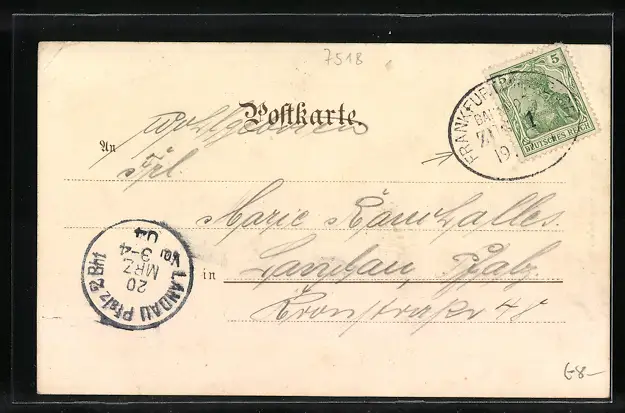 7518
Postkarte
Wohlgeboren
An Frl.
Marie
in Landau, Pfalz.
Kronstraße 48
FRANKFURT
BAHNPOST
ZUG 1
19
5
DEUTSCHES REICH
LANDAU Pfalz 2 Bhf
20
MRZ
3-4
04
€8-